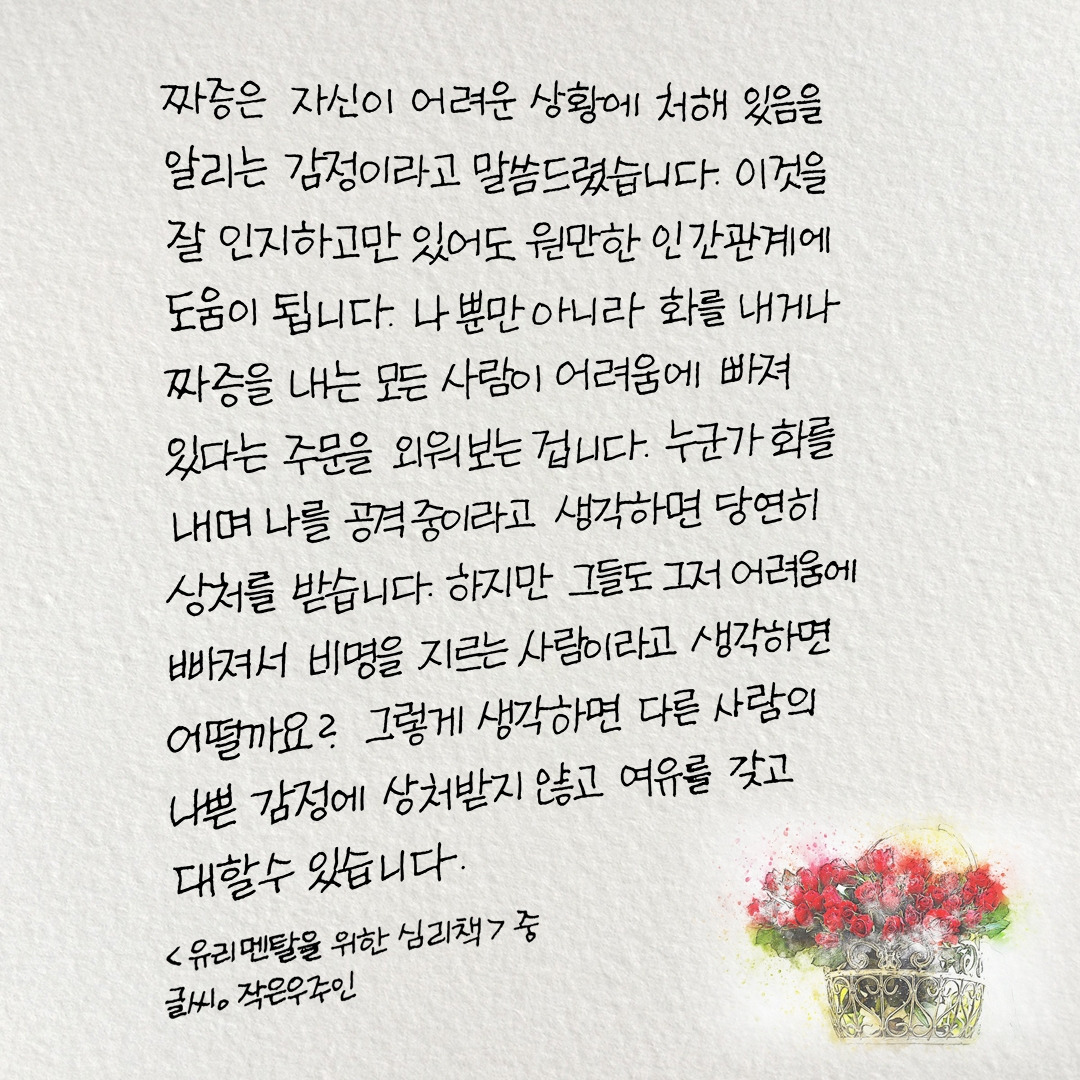 짜증은 자신이 어려운 상황에 처해 있음을
알리는 감정이라고 말씀드렸습니다. 이것을
잘 인지하고만 있어도 원만한 인간관계에
도움이 됩니다. 나 뿐만 아니라 화를 내거나
짜증을 내는 모든 사람이 어려움에 빠져
있다는 주문을 외워보는 겁니다. 누군가 화를
내며 나를 공격중이라고 생각하면 당연히
상처를 받습니다. 하지만 그들도 그저 어려움에
빠져서 비명을 지르는 사람이라고 생각하면
어떨까요? 그렇게 생각하면 다른 사람의
나쁜 감정에 상처받지 않고 여유를 갖고
대할수 있습니다.
<유리멘탈을 위한 심리책> 중
글씨。작은우주인